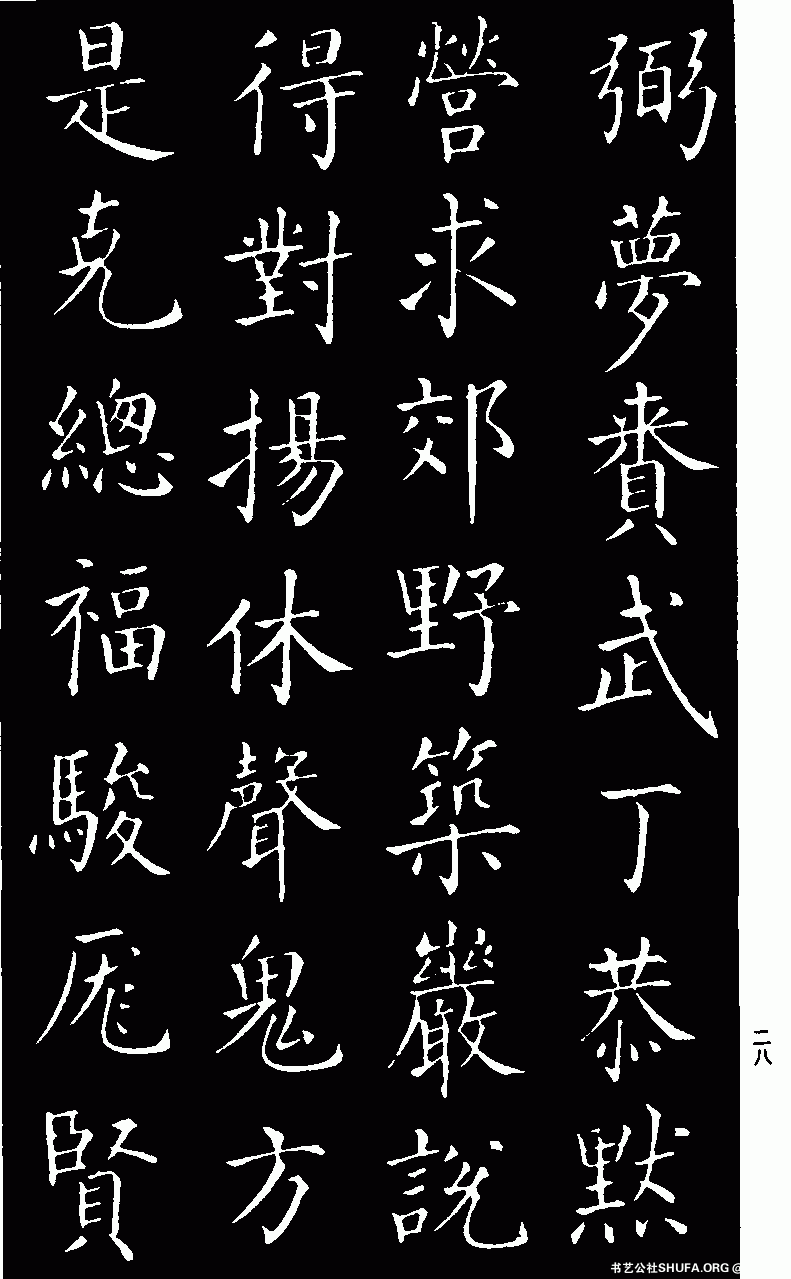 弼夢賚武丁恭默
營求郊野築巖說
得對揚休聲鬼方
是克總福駿厖賢
二八
书艺公社SHUFA.ORG @